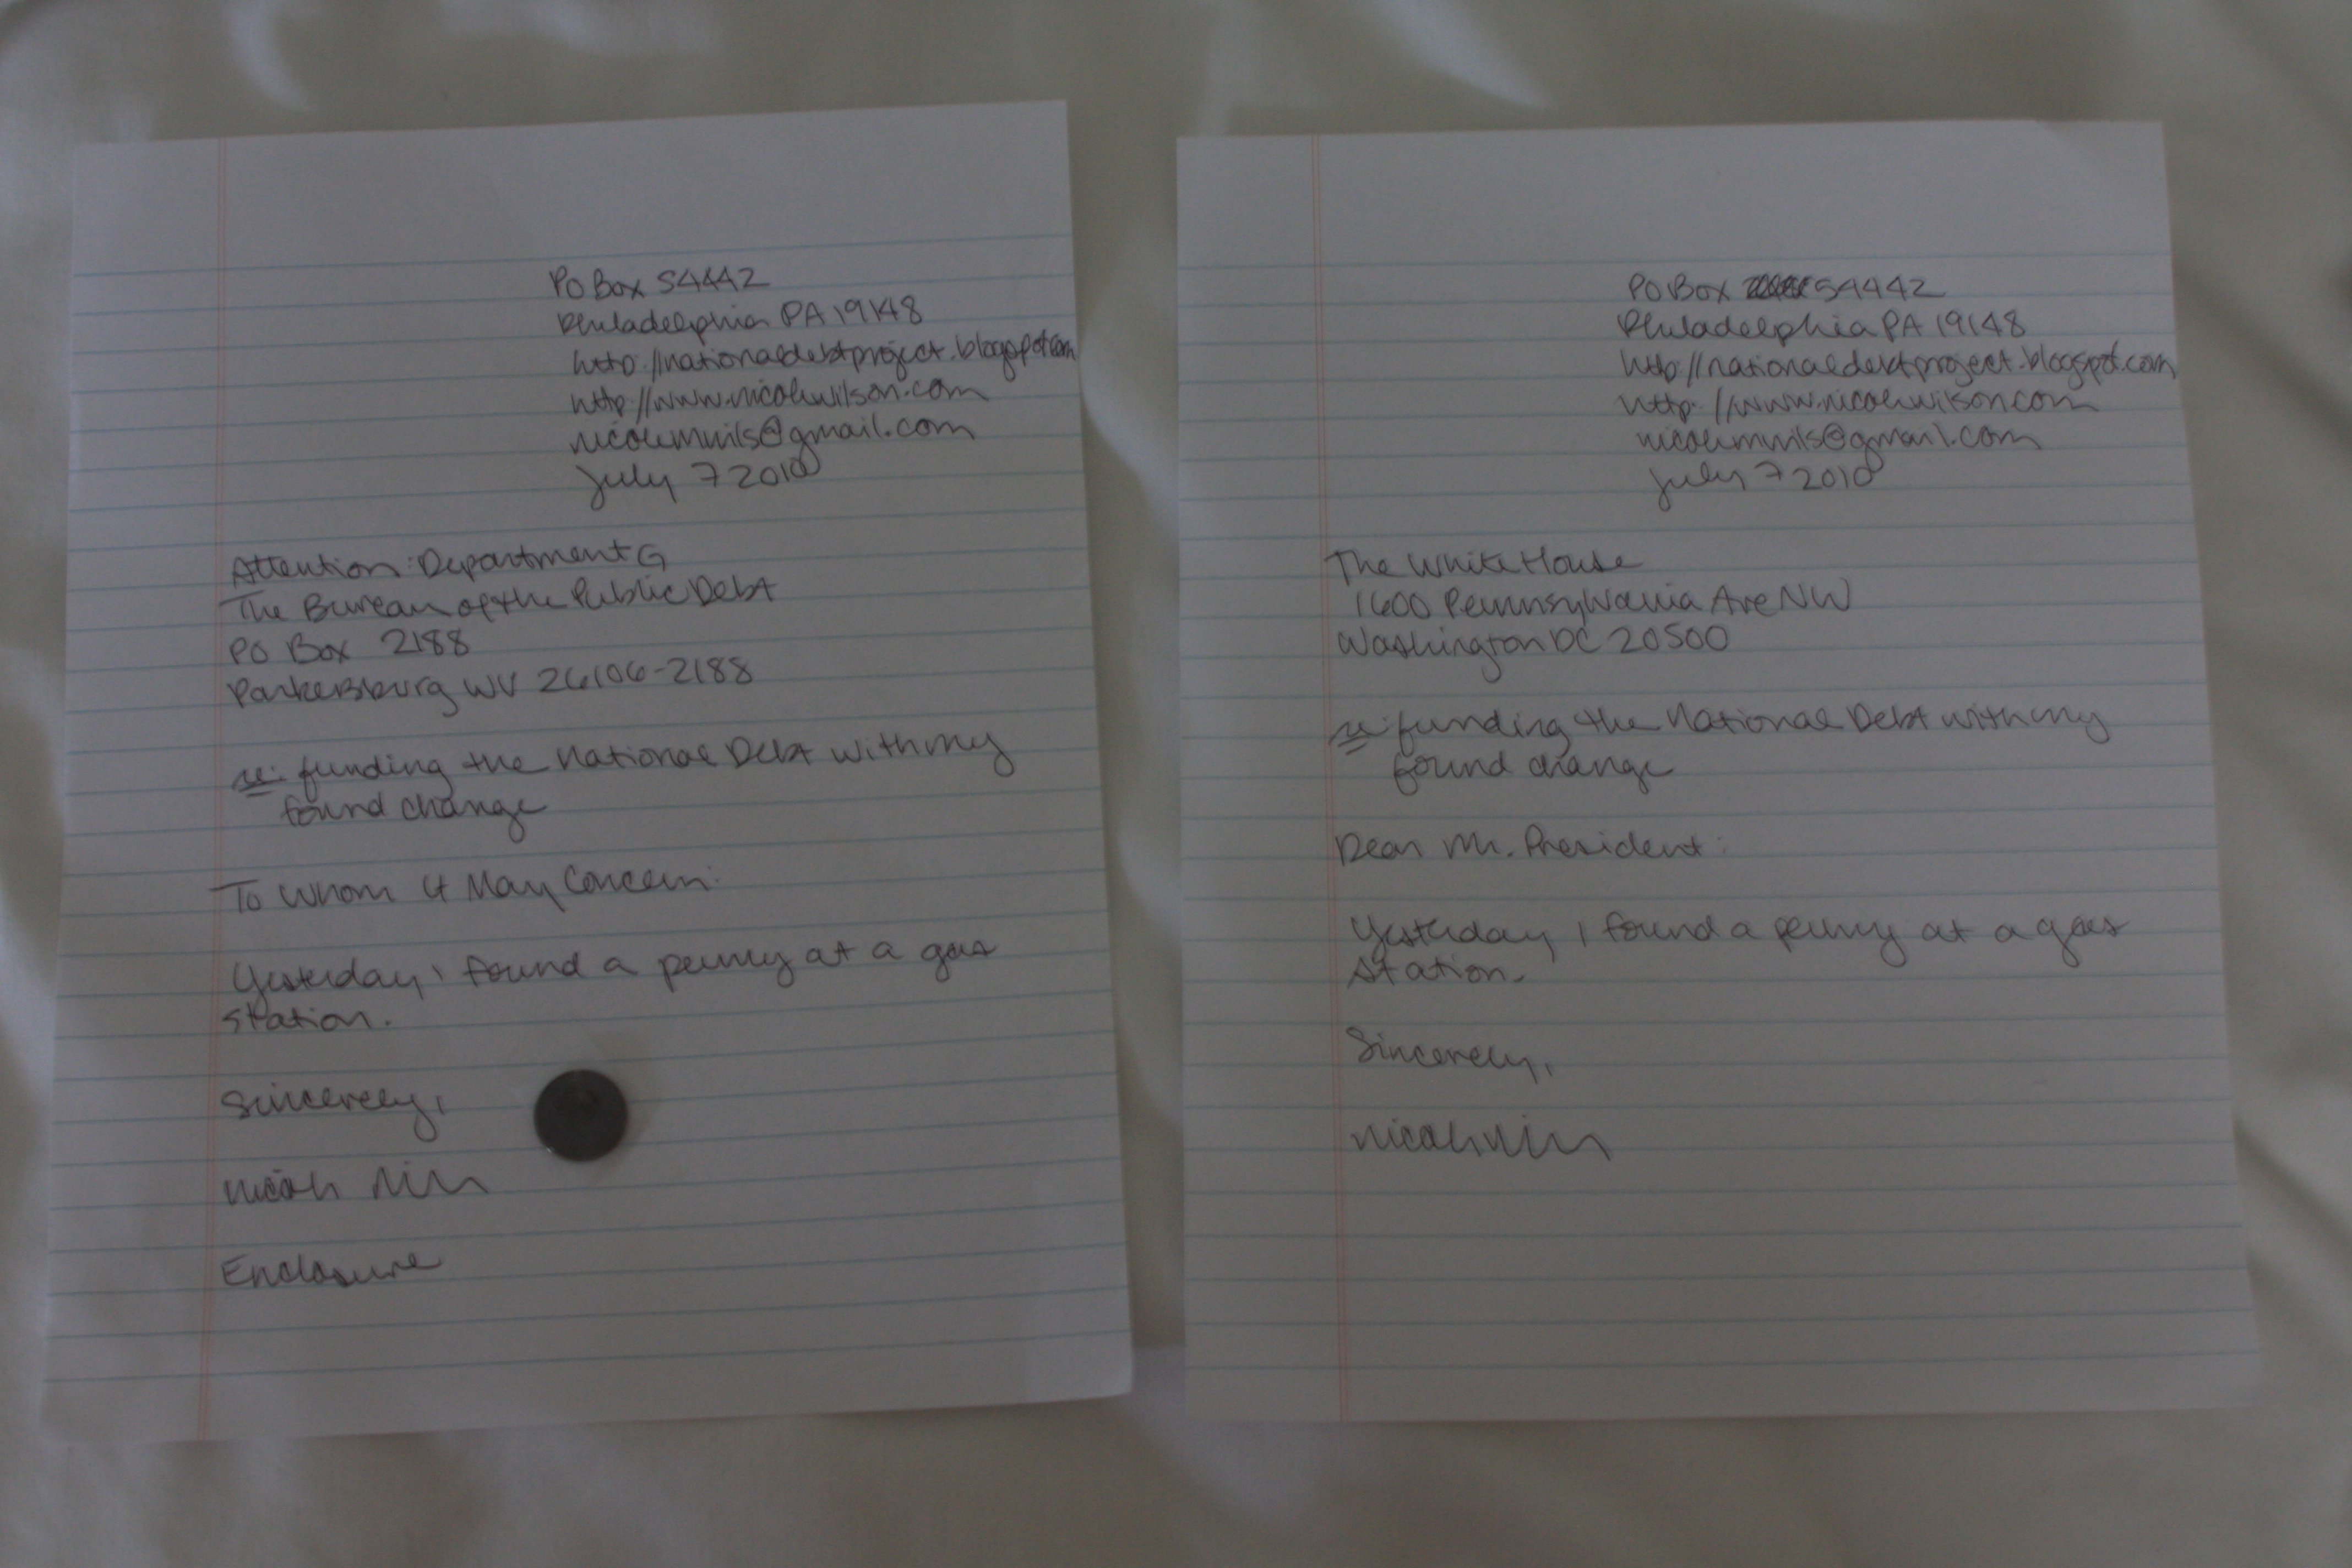 PO Box 54442
Philadelphia PA 19148
http://nationaldebtproject.blogspot.com
http://www.nicolewilson.com
nicolemwils@gmail.com
July 7 2010
Attention: Department G
The Bureau of the Public Debt
PO Box 2188
Parkersburg WV 26106-2188
re: funding the National Debt with my
found change
To Whom It May Concern:
Yesterday, I found a penny at a gas
station.
Sincerely,
Enclosure
PO Box 54442
Philadelphia PA 19148
http://nationaldebtproject.blogspot.com
http://www.nicolewilson.com
nicolemwils@gmail.com
July 7 2010
The White House
1600 Pennsylvania Ave NW
Washington DC 20500
re: funding the National Debt with my
found change
Dear Mr. President:
Yesterday, I found a penny at a gas
station.
Sincerely,